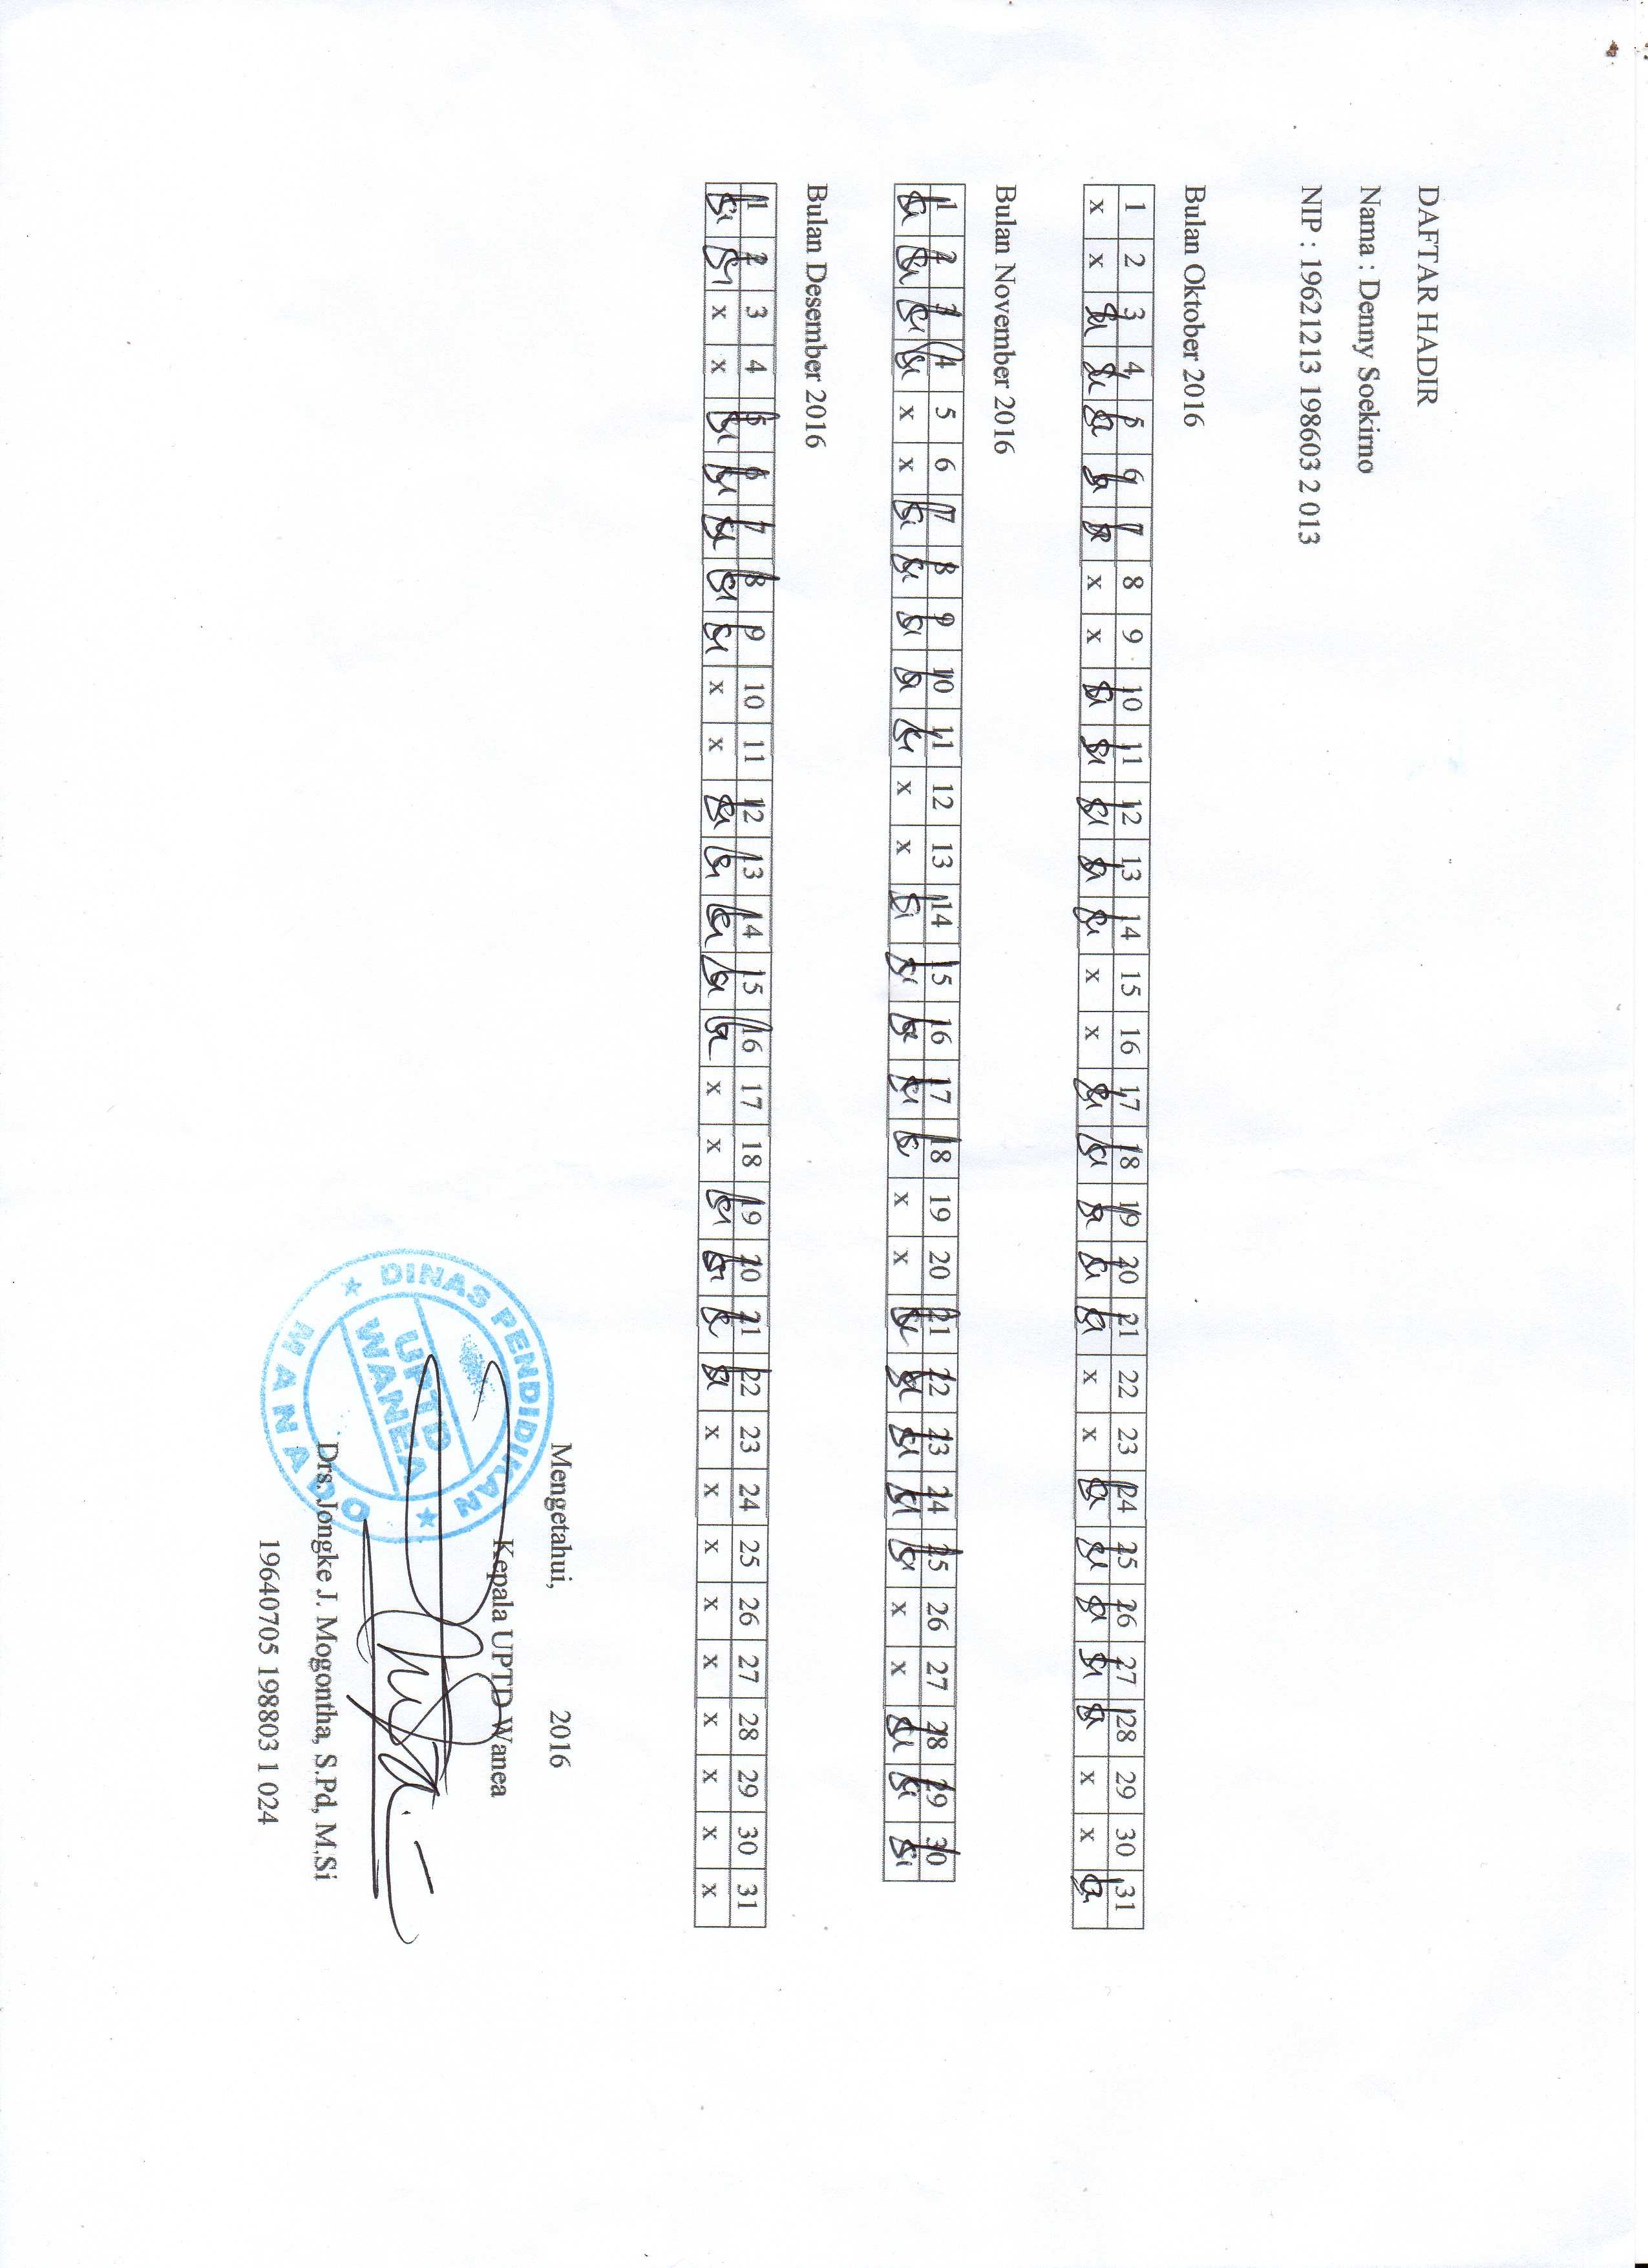 DAFTAR HADIR
Nama : Denny Soekirno
NIP : 19621213 198603 2 013
Bulan Oktober 2016
1 2 3 4 5 6 7 8 9 10 11 12 13 14 15 16 17 18 19 20 21 22 23 24 25 26 27 28 29 30 31
x x x x x x x x x x
Bulan November 2016
1 2 3 4 5 6 7 8 9 10 11 12 13 14 15 16 17 18 19 20 21 22 23 24 25 26 27 28 29 30
x x x x x x x x
Bulan Desember 2016
1 2 3 4 5 6 7 8 9 10 11 12 13 14 15 16 17 18 19 20 21 22 23 24 25 26 27 28 29 30 31
x x x x x x x x x x x x x x x
Mengetahui, 2016
Kepala UPTD Wanea
DINAS PENDIDIKAN
UPTD
WANEA
MANADO
Drs. Jongke J. Mogontha, S.Pd, M.Si
19640705 198803 1 024